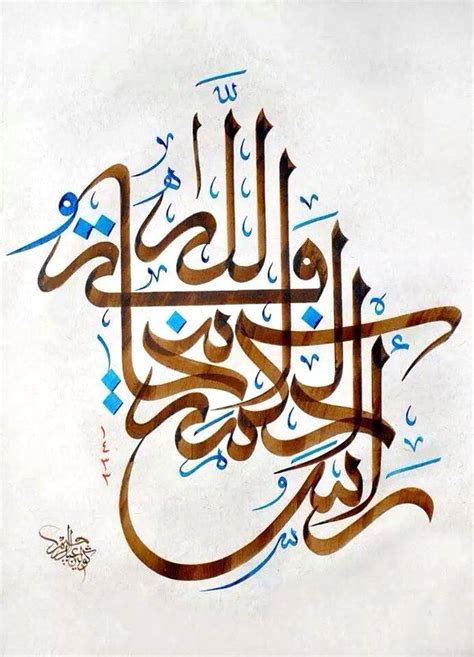 رأس الحكمة مخافة الله
١٤٣٢